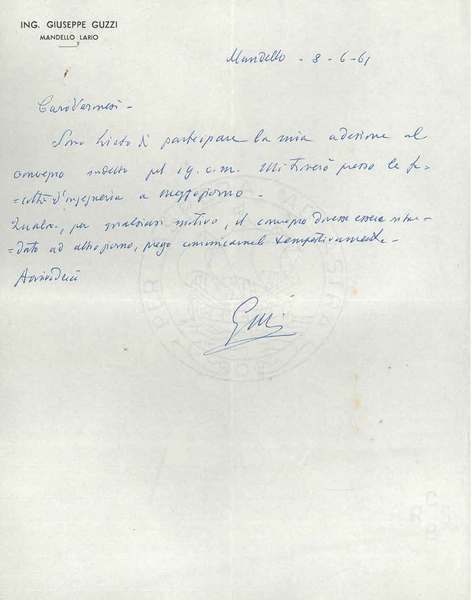 ING. GIUSEPPE GUZZI
MANDELLO LARIO
Mandello - 8-6-61
Caro Varinesi -
Sono lieto di partecipare la mia adesione al
convegno indetto pel 19 c.m. Mi troverò presso la fa-
-coltà d'ingegneria a mezzogiorno -
Qualora, per qualsiasi motivo, il convegno dovesse essere riman-
-dato ad altro giorno, prego comunicarmelo tempestivamente -
Arrivederci
Guzzi